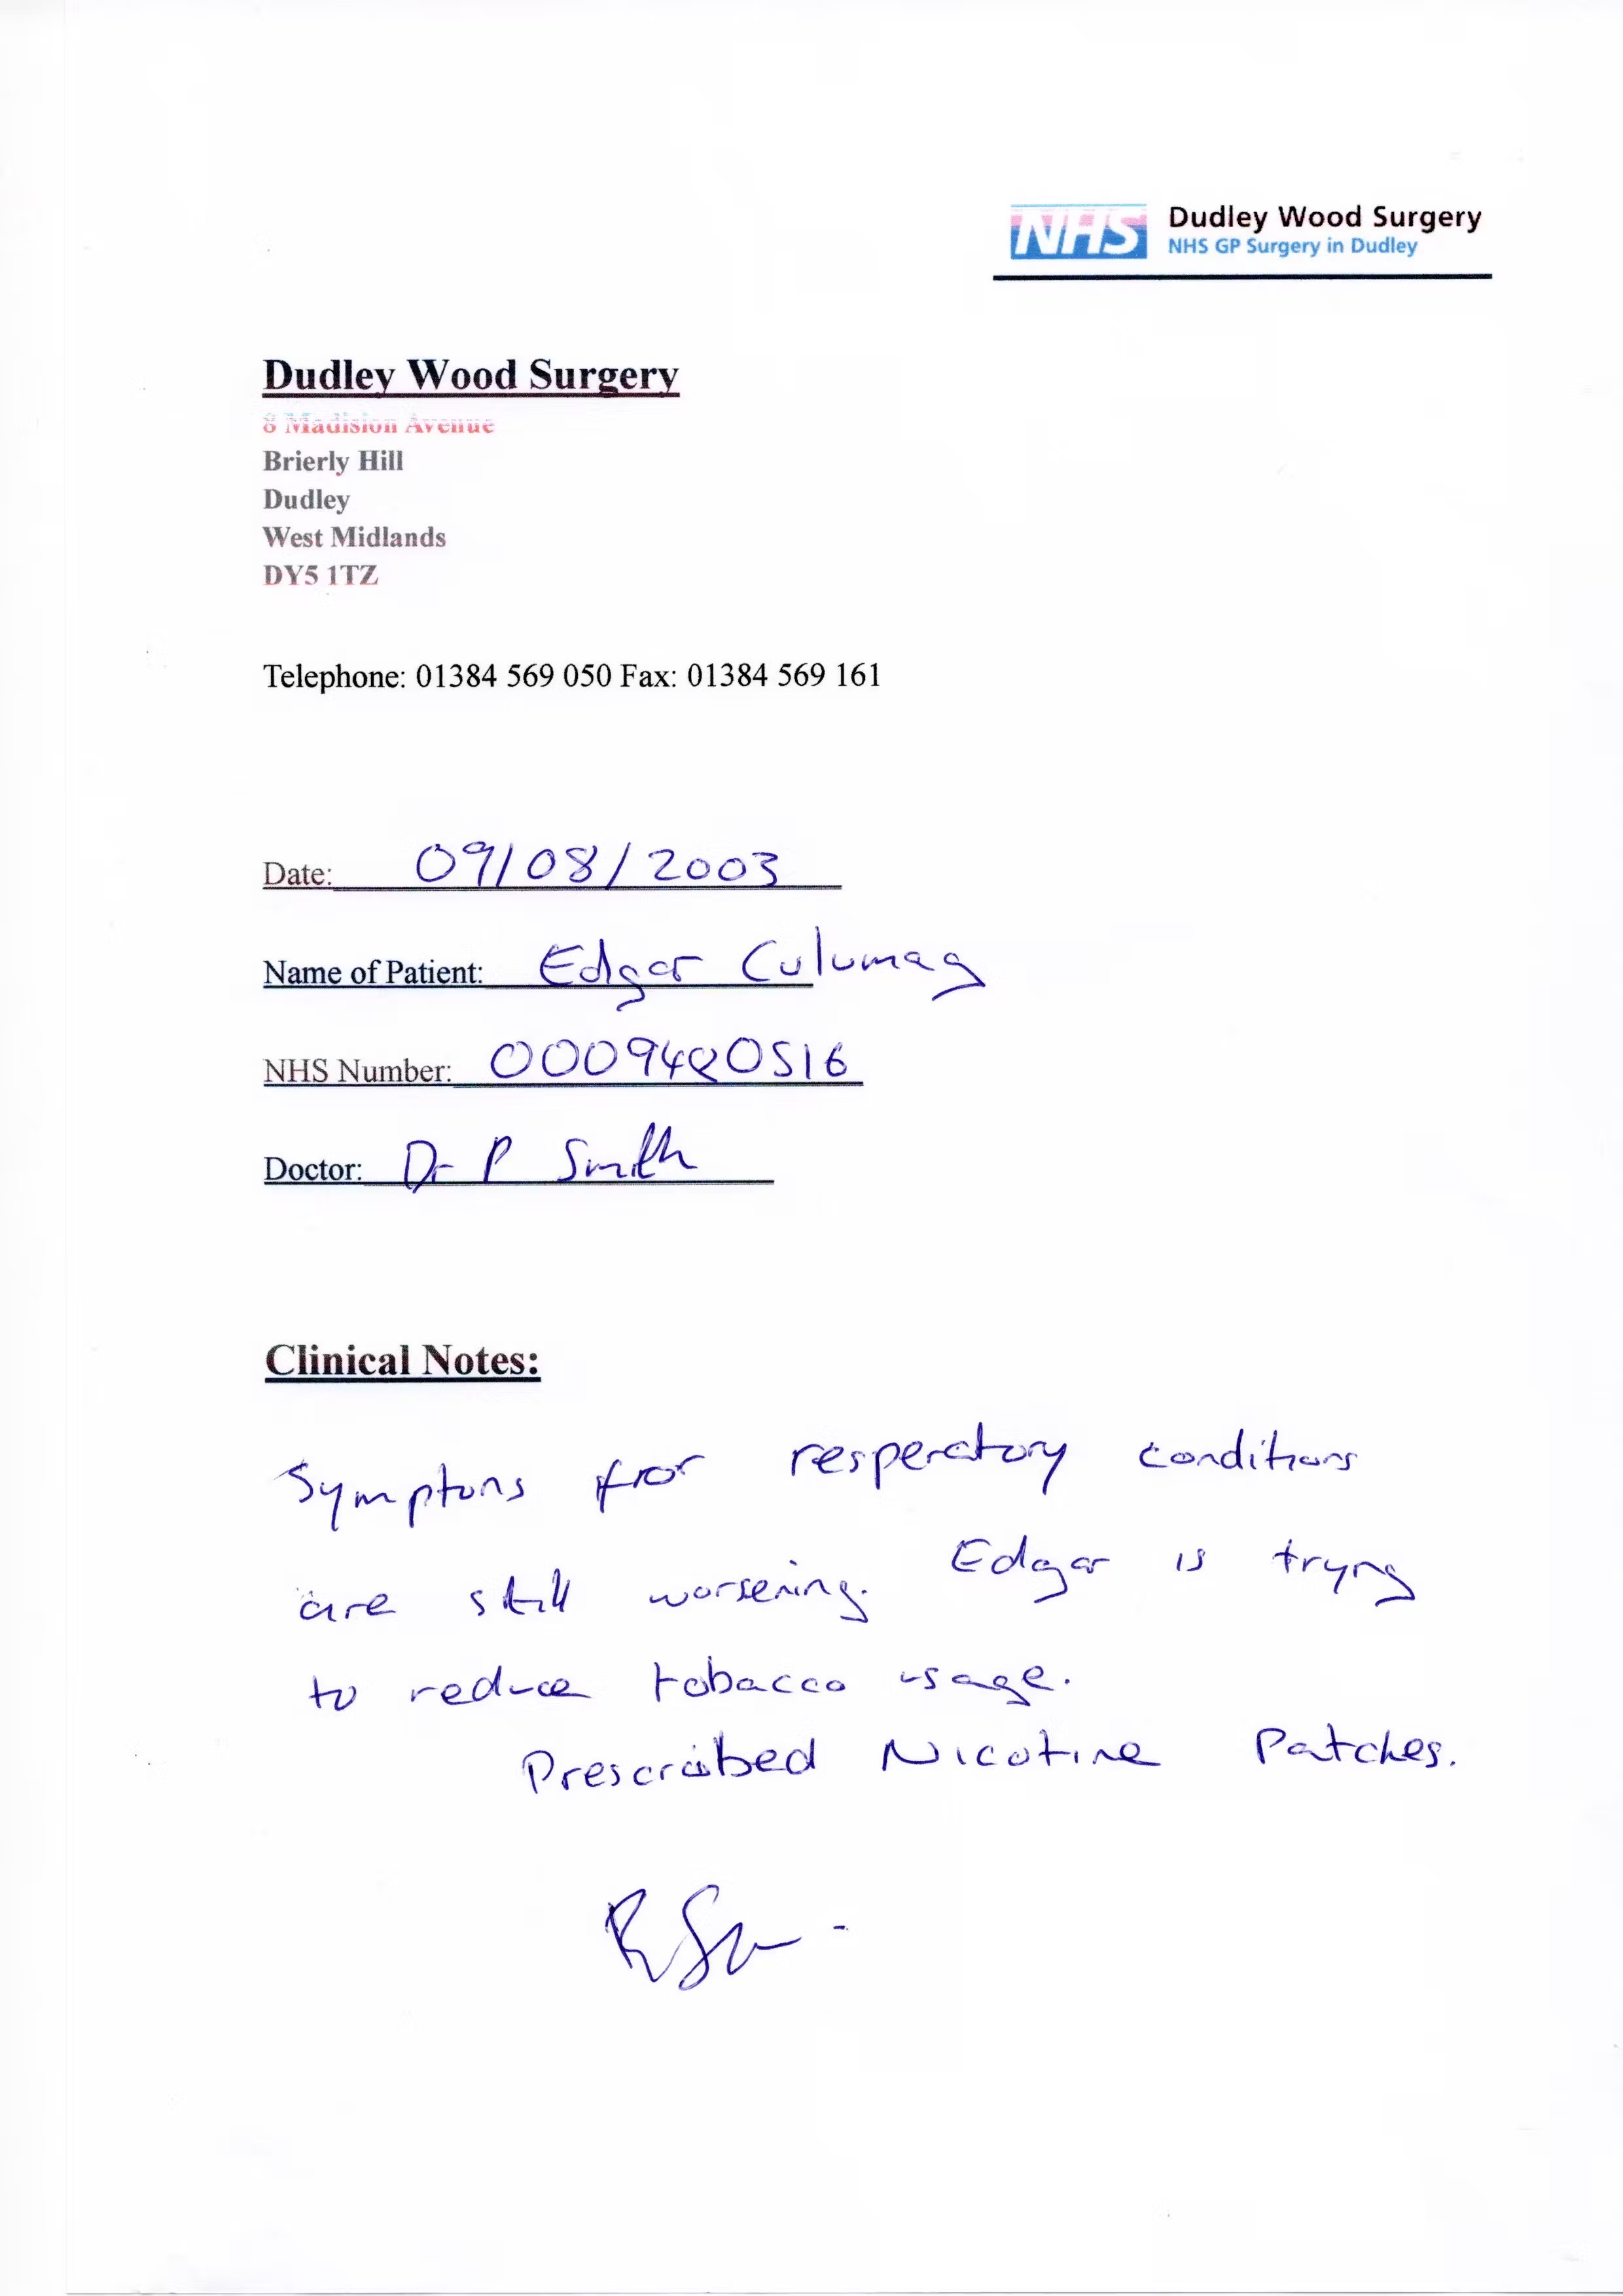 NHS Dudley Wood Surgery
NHS GP Surgery in Dudley
Dudley Wood Surgery
8 Madision Avenue
Brierly Hill
Dudley
West Midlands
DY5 1TZ
Telephone: 01384 569 050 Fax: 01384 569 161
Date: 09/08/2003
Name of Patient: Edgar Culumag
NHS Number: 0009420516
Doctor: Dr P Smith
Clinical Notes:
Symptons for resperatory conditions
are still worsening. Edgar is trying
to reduce tobacco usage.
Prescribed Nicotine Patches.